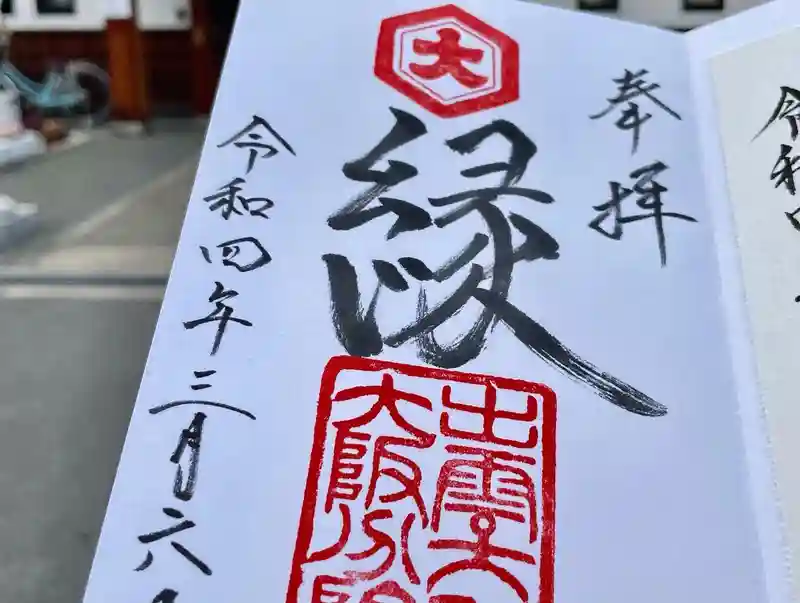 奉拝
大
縁
出雲大
大阪分
令和四年三月六
令和